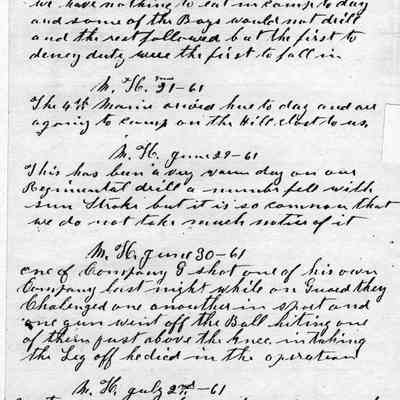 we have nothing to eat in camp to day
and some of the Boys would not drill
and the rest followed but the first to
deney duty were the first to fall in
M. H. 21-61
The 4th Maine arived here to day and are
agoing to camp on the Hill clost to us.
M. H. June 29-61
This has been a very warm day on our
Regimental drill a number fell with
sun Stroke but it is so common that
we do not take much notice of it
M. H. June 30-61
one of Company G shot one of his own
Company last night while on Guard they
Chalenged one anouther in sport and
one gun went off the Ball hiting one
of them just above the Knee. in taking
the Leg off he died in the operation
M. H. July 2nd-61